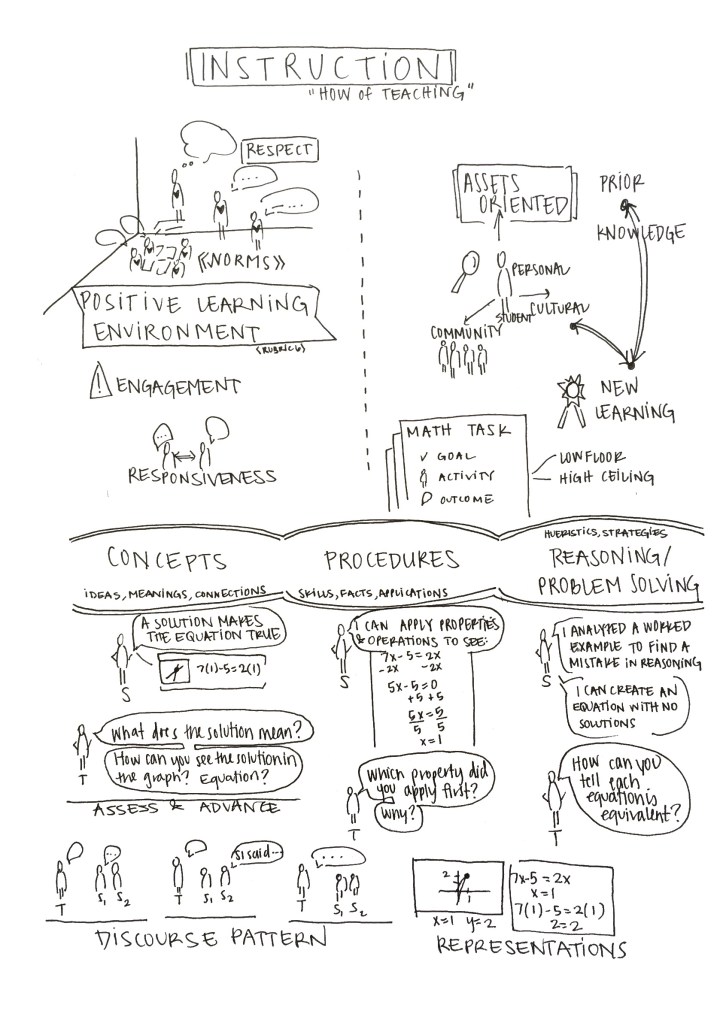 INSTRUCTION
"HOW OF TEACHING"
RESPECT
...
...
《NORMS》
POSITIVE LEARNING
ENVIRONMENT
(RUBRIC 6)
! ENGAGEMENT
...
RESPONSIVENESS
ASSETS
ORIENTED
PRIOR
KNOWLEDGE
PERSONAL
CULTURAL
STUDENT
COMMUNITY
NEW
LEARNING
MATH TASK
✓ GOAL
ACTIVITY
OUTCOME
LOW FLOOR
HIGH CEILING
CONCEPTS
IDEAS, MEANINGS, CONNECTIONS
A SOLUTION MAKES
THE EQUATION TRUE
7(1)-5=2(1)
S
What does the solution mean?
How can you see the solution in
the graph? Equation?
T
ASSESS & ADVANCE
PROCEDURES
SKILLS, FACTS, APPLICATIONS
I CAN APPLY PROPERTIES
& OPERATIONS TO SEE:
7x-5=2x
-2x -2x
5x-5=0
+5 +5
5x=5
5 5
x=1
S
Which property did
you apply first?
Why?
T
HUERISTICS, STRATEGIES
REASONING/
PROBLEM SOLVING
I ANALYZED A WORKED
EXAMPLE TO FIND A
MISTAKE IN REASONING
S
I CAN CREATE AN
EQUATION WITH NO
SOLUTIONS
How can you
tell each
equation is
equivalent?
T
...
T S1 S2
S1 said...
T S1 S2
...
T S1 S2
DISCOURSE PATTERN
2
1
x=1 y=2
7x-5=2x
x=1
7(1)-5=2(1)
2=2
REPRESENTATIONS